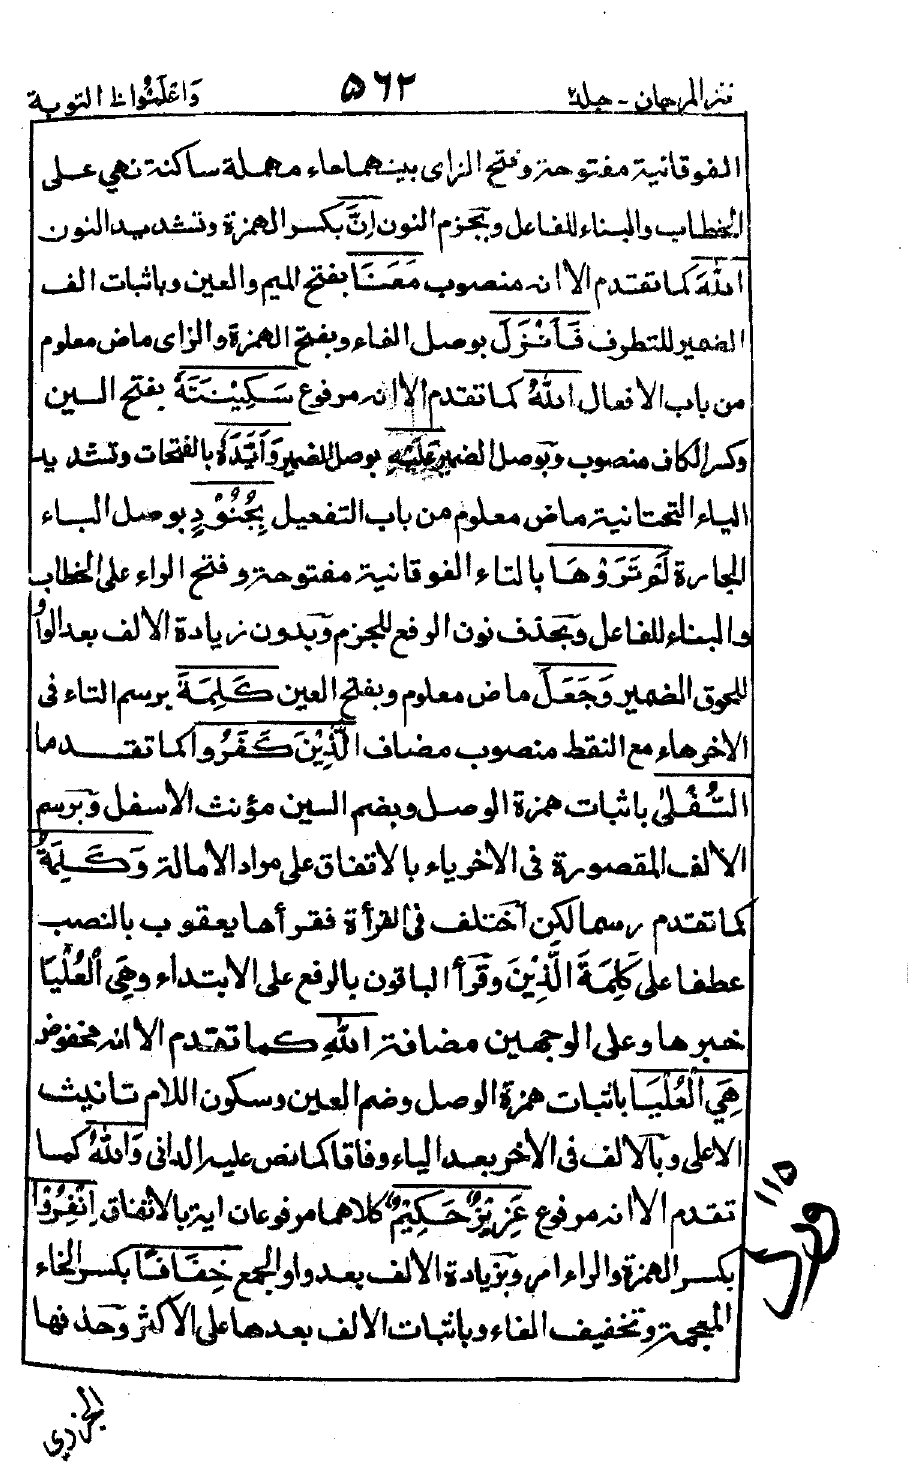 نثر المرجان - جلد٢ ٥٦٢ واعلموا ١٠ التوبة
الفوقانية مفتوحة وفتح الزاى بينهما حاء مهملة ساكنة نهي على
الخطاب والبناء للفاعل وبجزم النون اِنَّ بكسر الهمزة وتشديد النون
اللّٰهَ كما تقدم الا انه منصوب مَعَنَا بفتح الميم والعين وباثبات الف
الضمير للتطرف فَاَنْزَلَ بوصل الفاء وبفتح الهمزة والزاى ماض معلوم
من باب الافعال اللّٰهُ كما تقدم الا انه مرفوع سَكِيْنَتَهٗ بفتح السين
وكسر الكاف منصوب وبوصل الضمير عَلَيْهِ بوصل الضمير وَاَيَّدَهٗ بالفتحات وتشديد
الياء التحتانية ماض معلوم من باب التفعيل بِجُنُوْدٍ بوصل الباء
الجارة لَمْ تَرَوْهَا بالتاء الفوقانية مفتوحة وفتح الراء على الخطاب
والبناء للفاعل وبحذف نون الرفع للجزم وبدون زيادة الالف بعد الواو
للحوق الضمير وَجَعَلَ ماض معلوم وبفتح العين كَلِمَةَ برسم التاء فى
الاخر هاء مع النقط منصوب مضاف الَّذِيْنَ كَفَرُوا كما تقدما
السُّفْلٰى باثبات همزة الوصل وبضم السين مؤنث الاسفل وبرسم
الالف المقصورة فى الاخر ياء بالاتفاق على مراد الامالة وَكَلِمَةُ
كما تقدم رسما لكن اختلف فى القرأة فقرأها يعقوب بالنصب
عطفا على كَلِمَةَ الَّذِيْنَ وقرأ الباقون بالرفع على الابتداء وهِيَ الْعُلْيَا
خبرها وعلى الوجهين مضافة اللّٰهِ كما تقدم الا انه مخفوض
هِيَ الْعُلْيَا باثبات همزة الوصل وضم العين وسكون اللام تانيث
الاعلى وبالالف فى الاخر بعد الياء وفاقا كما نص عليه الدانى وَاللّٰهُ كما
تقدم الا انه مرفوع عَزِيْزٌ حَكِيْمٌ كلاهما مرفوعان اية بالاتفاق اِنْفِرُوْا
بكسر الهمزة والراء امر وبزيادة الالف بعد واو الجمع خِفَافًا بكسر الخاء
المعجمة وتخفيف الفاء وباثبات الالف بعدها على الاكثر وحذفها
الجزرى